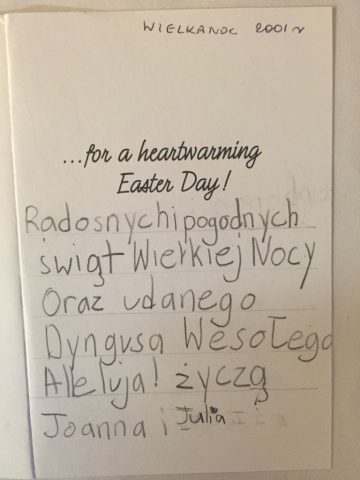 WIELKANOC 2001 r
...for a heartwarming
Easter Day!
Radosnych i pogodnych
świąt Wielkiej Nocy
Oraz udanego
Dyngusa Wesołego
Alleluja! życzą
Joanna i Julia